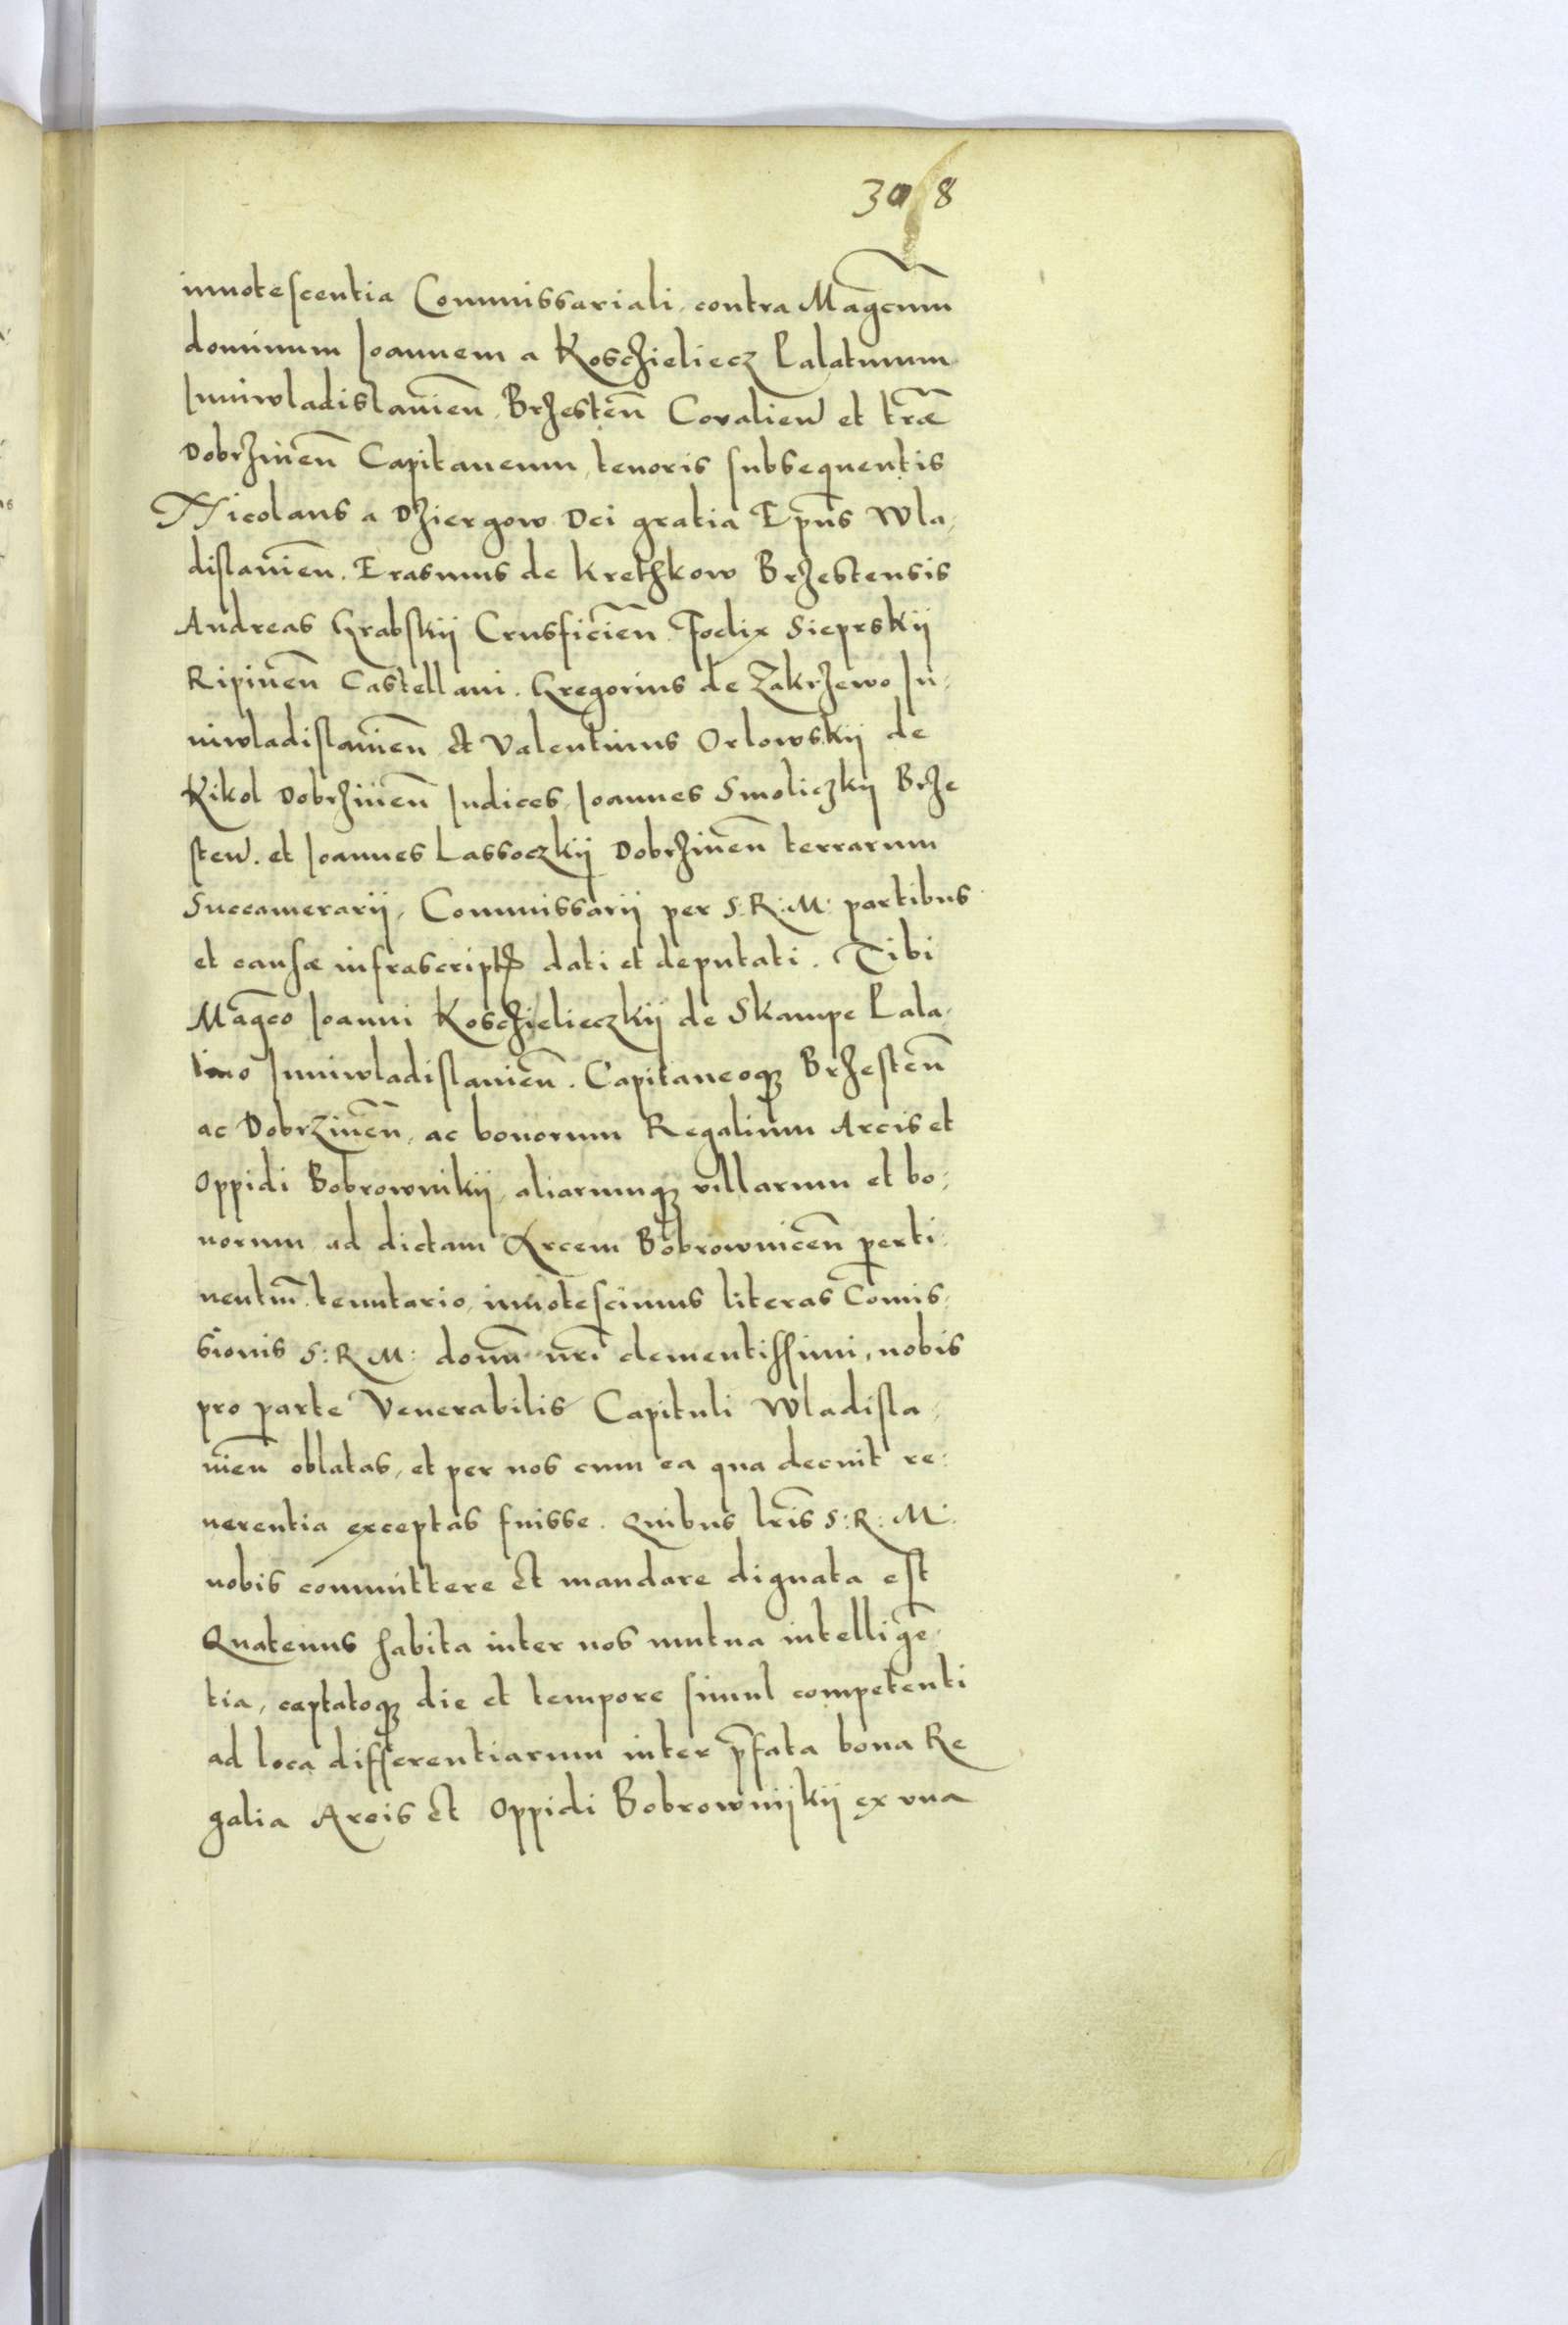 308
innotescentia Commissariali, contra Magcum̄
dominum Joannem a Koschieliecz Palatinum
Juniwladislauien̄ Brzesten̄ Covalien̄ et trā̄e
Dobrzinen̄ Capitaneum, tenoris subsequentis
Nicolaus a Dziergow Dei gratia Ep̄us Wla,
dislauien̄. Erasmus de Krethkow Brzestensis
Andreas Grabskij Crusficien̄ Foelix Sieprskij
Ripinen̄ Castellani. Gregorius de Zakrzewo Ju,
niwladislauien̄ et Valentinus Orlowskij de
Kikol Dobrzinen̄ Judices, Joannes Smoliczkij Brze
sten̄. et Joannes Lassoczkij Dobrzinen̄ terrarum
Succamerarij, Commissarij per S: R: M: partibus
et causæ infrascriptꝭ dati et deputati. Tibi
Magc̄o Joanni Koschielieczkij de Skampe Pala,
tino Juniwladislauien̄. Capitaneoqꝫ Brzesten̄
ac Dobrzinen̄, ac bonorum Regalium Arcis et
Oppidi Bobrownikij, aliarumqꝫ villarum et bo,
norum, ad dictam Arcem Bobrownicen̄ perti,
nentiū. tenutario, innotescimus literas Com̄is,
sionis S: R M: domī nrī clementissimi, nobis
pro parte Venerabilis Capituli Wladisla,
uien̄ oblatas, et per nos cum ea qua decuit re:
uerentia exceptas fuisse. Quibus lrīs S: R: M:
nobis committere et mandare dignata est
Quatenus habita inter nos mutua intelligē
tia, captatoqꝫ die et tempore simul competenti
ad loca differentiarum inter p̄fata bona Re
galia Arcis et Oppidi Bobrownijkij ex vna